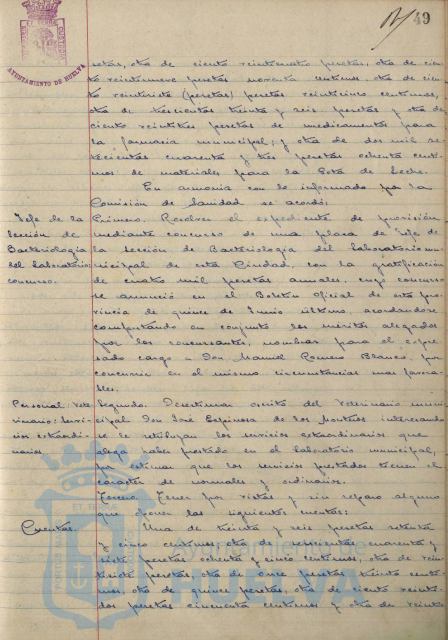 49
AYUNTAMIENTO DE HUELVA
setas, otra de ciento veinticuatro pesetas, otra de cien-
to veintinueve pesetas noventa centimos, otra de cien-
to veintisiete (pesetas) pesetas veinticinco centimos,
otra de trescientas treinta y seis pesetas y otra de
ciento veintitres pesetas de medicamentos para
la farmacia municipal; y otra de dos mil se-
tecientas cuarenta y tres pesetas ochenta centi-
mos de materiales para la Gota de Leche.
En armonia con lo informado por la
Comisión de Sanidad se acordó:
Jefe de la
Sección de
Bacteriología
del Laboratorio:
concurso.
Primero. Resolver el expediente de provisión
mediante concurso de una plaza de Jefe de
la Sección de Bacteriología del Laboratorio mu-
nicipal de esta Ciudad, con la gratificación
de cuatro mil pesetas anuales, cuyo concurso
se anunció en el Boletin Oficial de esta pro-
vincia de quince de Junio último, acordandose
computando en conjunto los méritos alegados
por los concursantes, nombrar para el expre-
sado cargo a Don Manuel Romero Blanco, por
concurrir en el mismo circunstancias mas favora-
bles.
Personal: Vete-
rinario: servi-
cios extraordi-
narios
Segundo. Desestimar escrito del Veterinario muni-
cipal Don José Espinosa de los Monteros interesando
se le retribuyan los servicios extraordinarios que
alega haber prestado en el laboratorio municipal,
por estimar que los servicios prestados tienen el
caracter de normales y ordinarios.
Tercero. Tener por vistas y sin reparo alguno
que oponer las siguientes cuentas:
Cuentas.
Una de treinta y seis pesetas setenta
y cinco centimos, otra de seiscientas cuarenta y
siete pesetas ochenta y cinco centimos, otra de vein-
tisiete pesetas, otra de once pesetas treinta centi-
mos, otra de quince pesetas, otra de ciento veinti-
dos pesetas cincuenta centimos y otra de veinti-
Ayuntamiento de
HUELVA